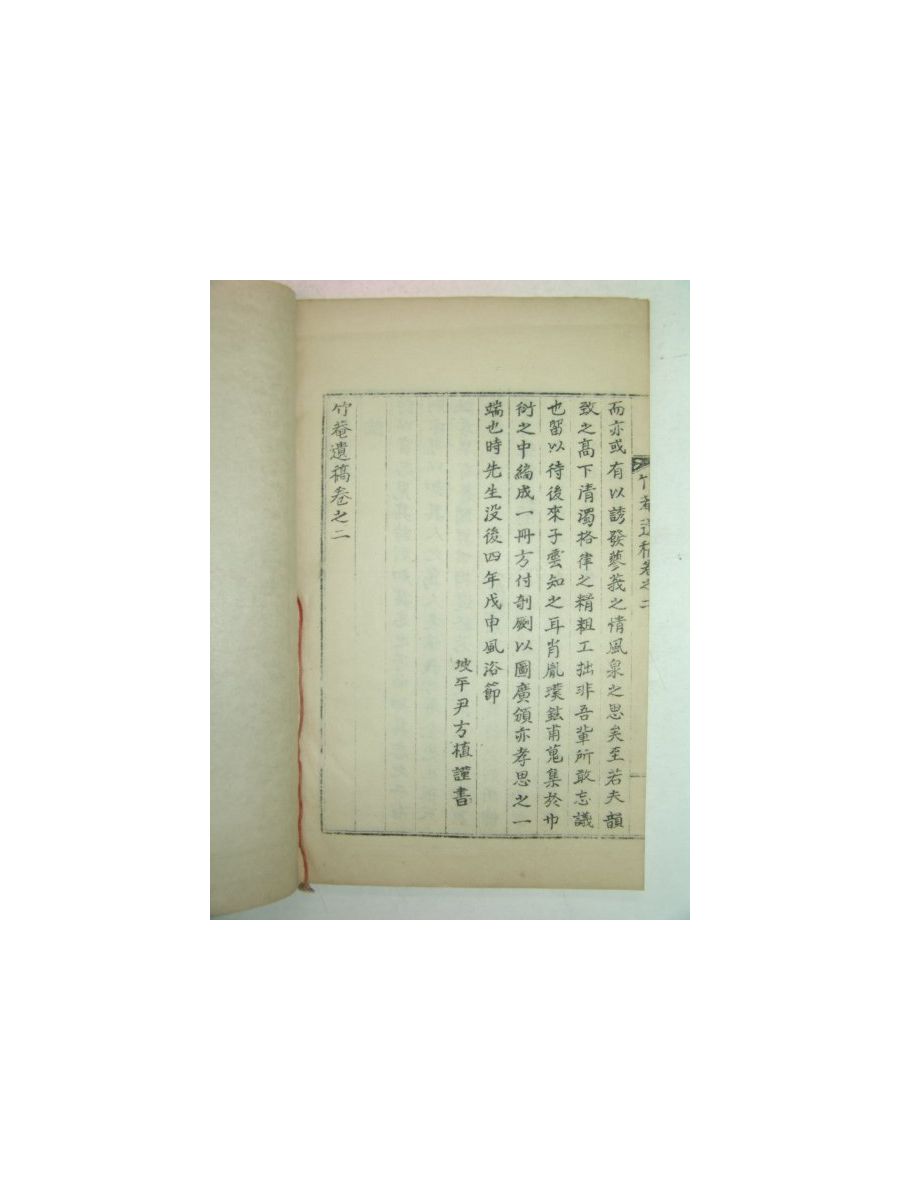 竹菴遺稿卷之二
而亦或有以誘發蓼莪之情風泉之思矣至若夫韻
致之高下清濁格律之精粗工拙非吾輩所敢忘議
也留以待後來子雲知之耳肖胤璞鉉甫蒐集於巾
衍之中編成一冊方付剞劂以圖廣頒亦孝思之一
端也時先生没後四年戊申風浴節
坡平尹方植謹書
竹菴遺稿卷之二